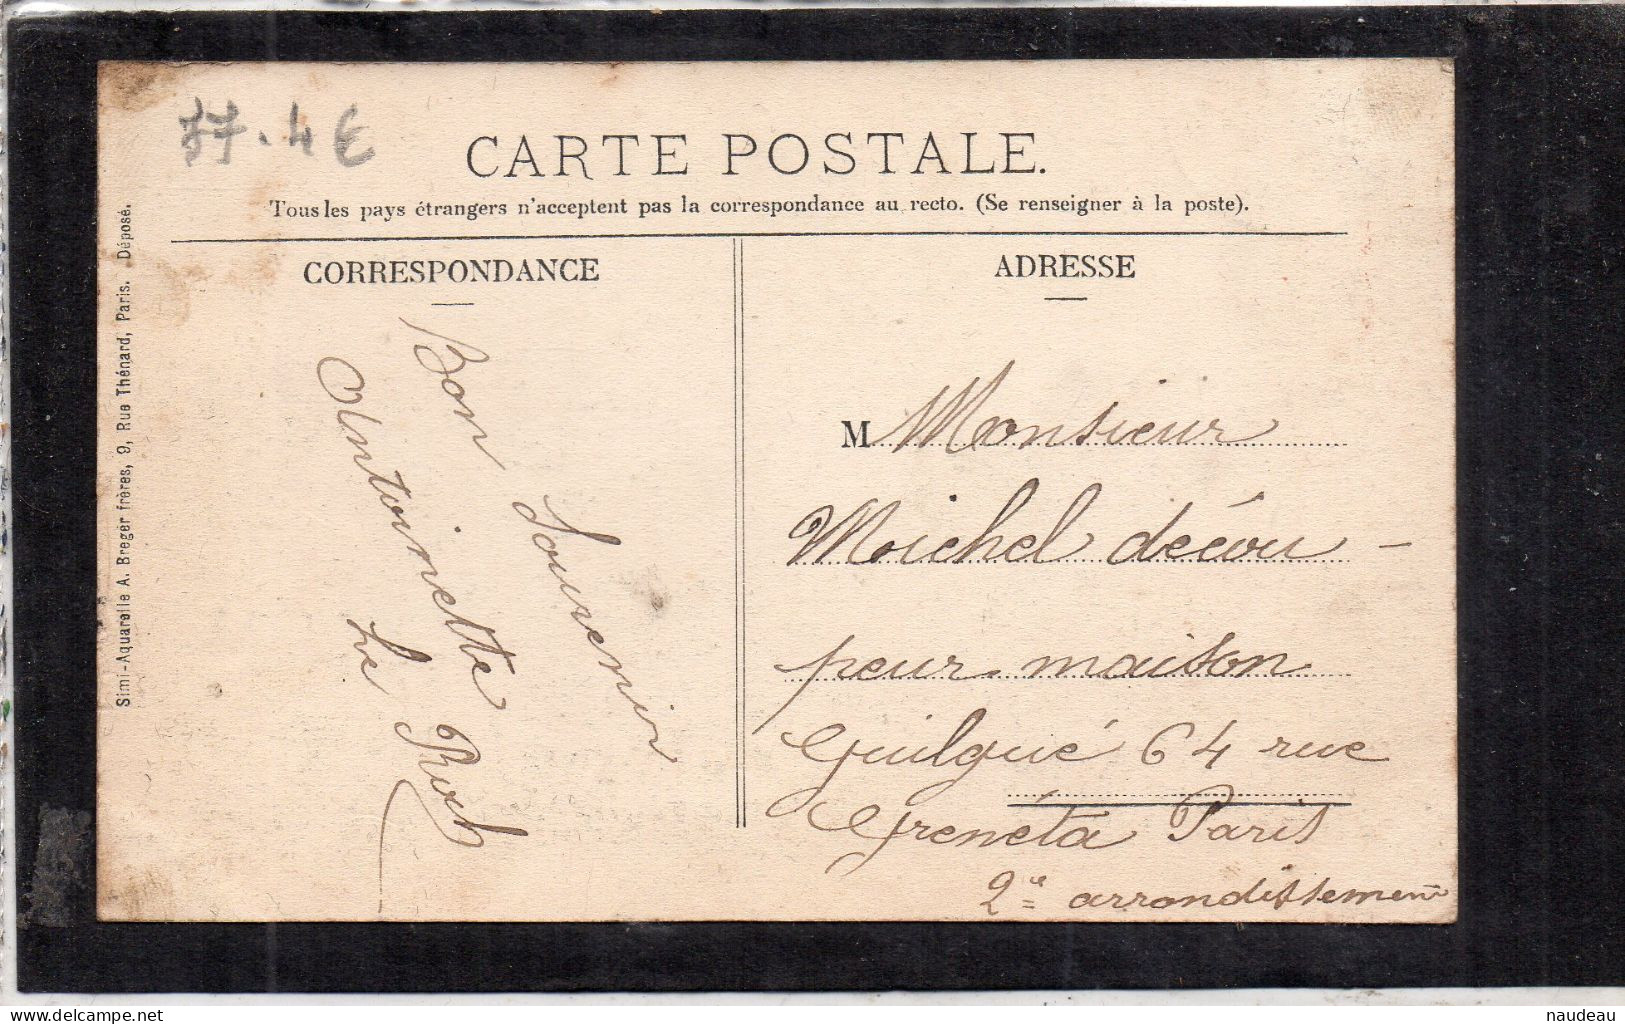 77. 4€
CARTE POSTALE.
Tous les pays étrangers n'acceptent pas la correspondance au recto. (Se renseigner à la poste).
CORRESPONDANCE
Bon Souvenir
Antoinette
Le Roch
ADRESSE
M Monsieur
Michel décou-
peur maison
Guilgué 64 rue
Grenéta Paris
2e arrondissement
Simi-Aquarelle A. Breger frères, 9, Rue Thénard, Paris. Déposé.
delcampe.net
naudeau